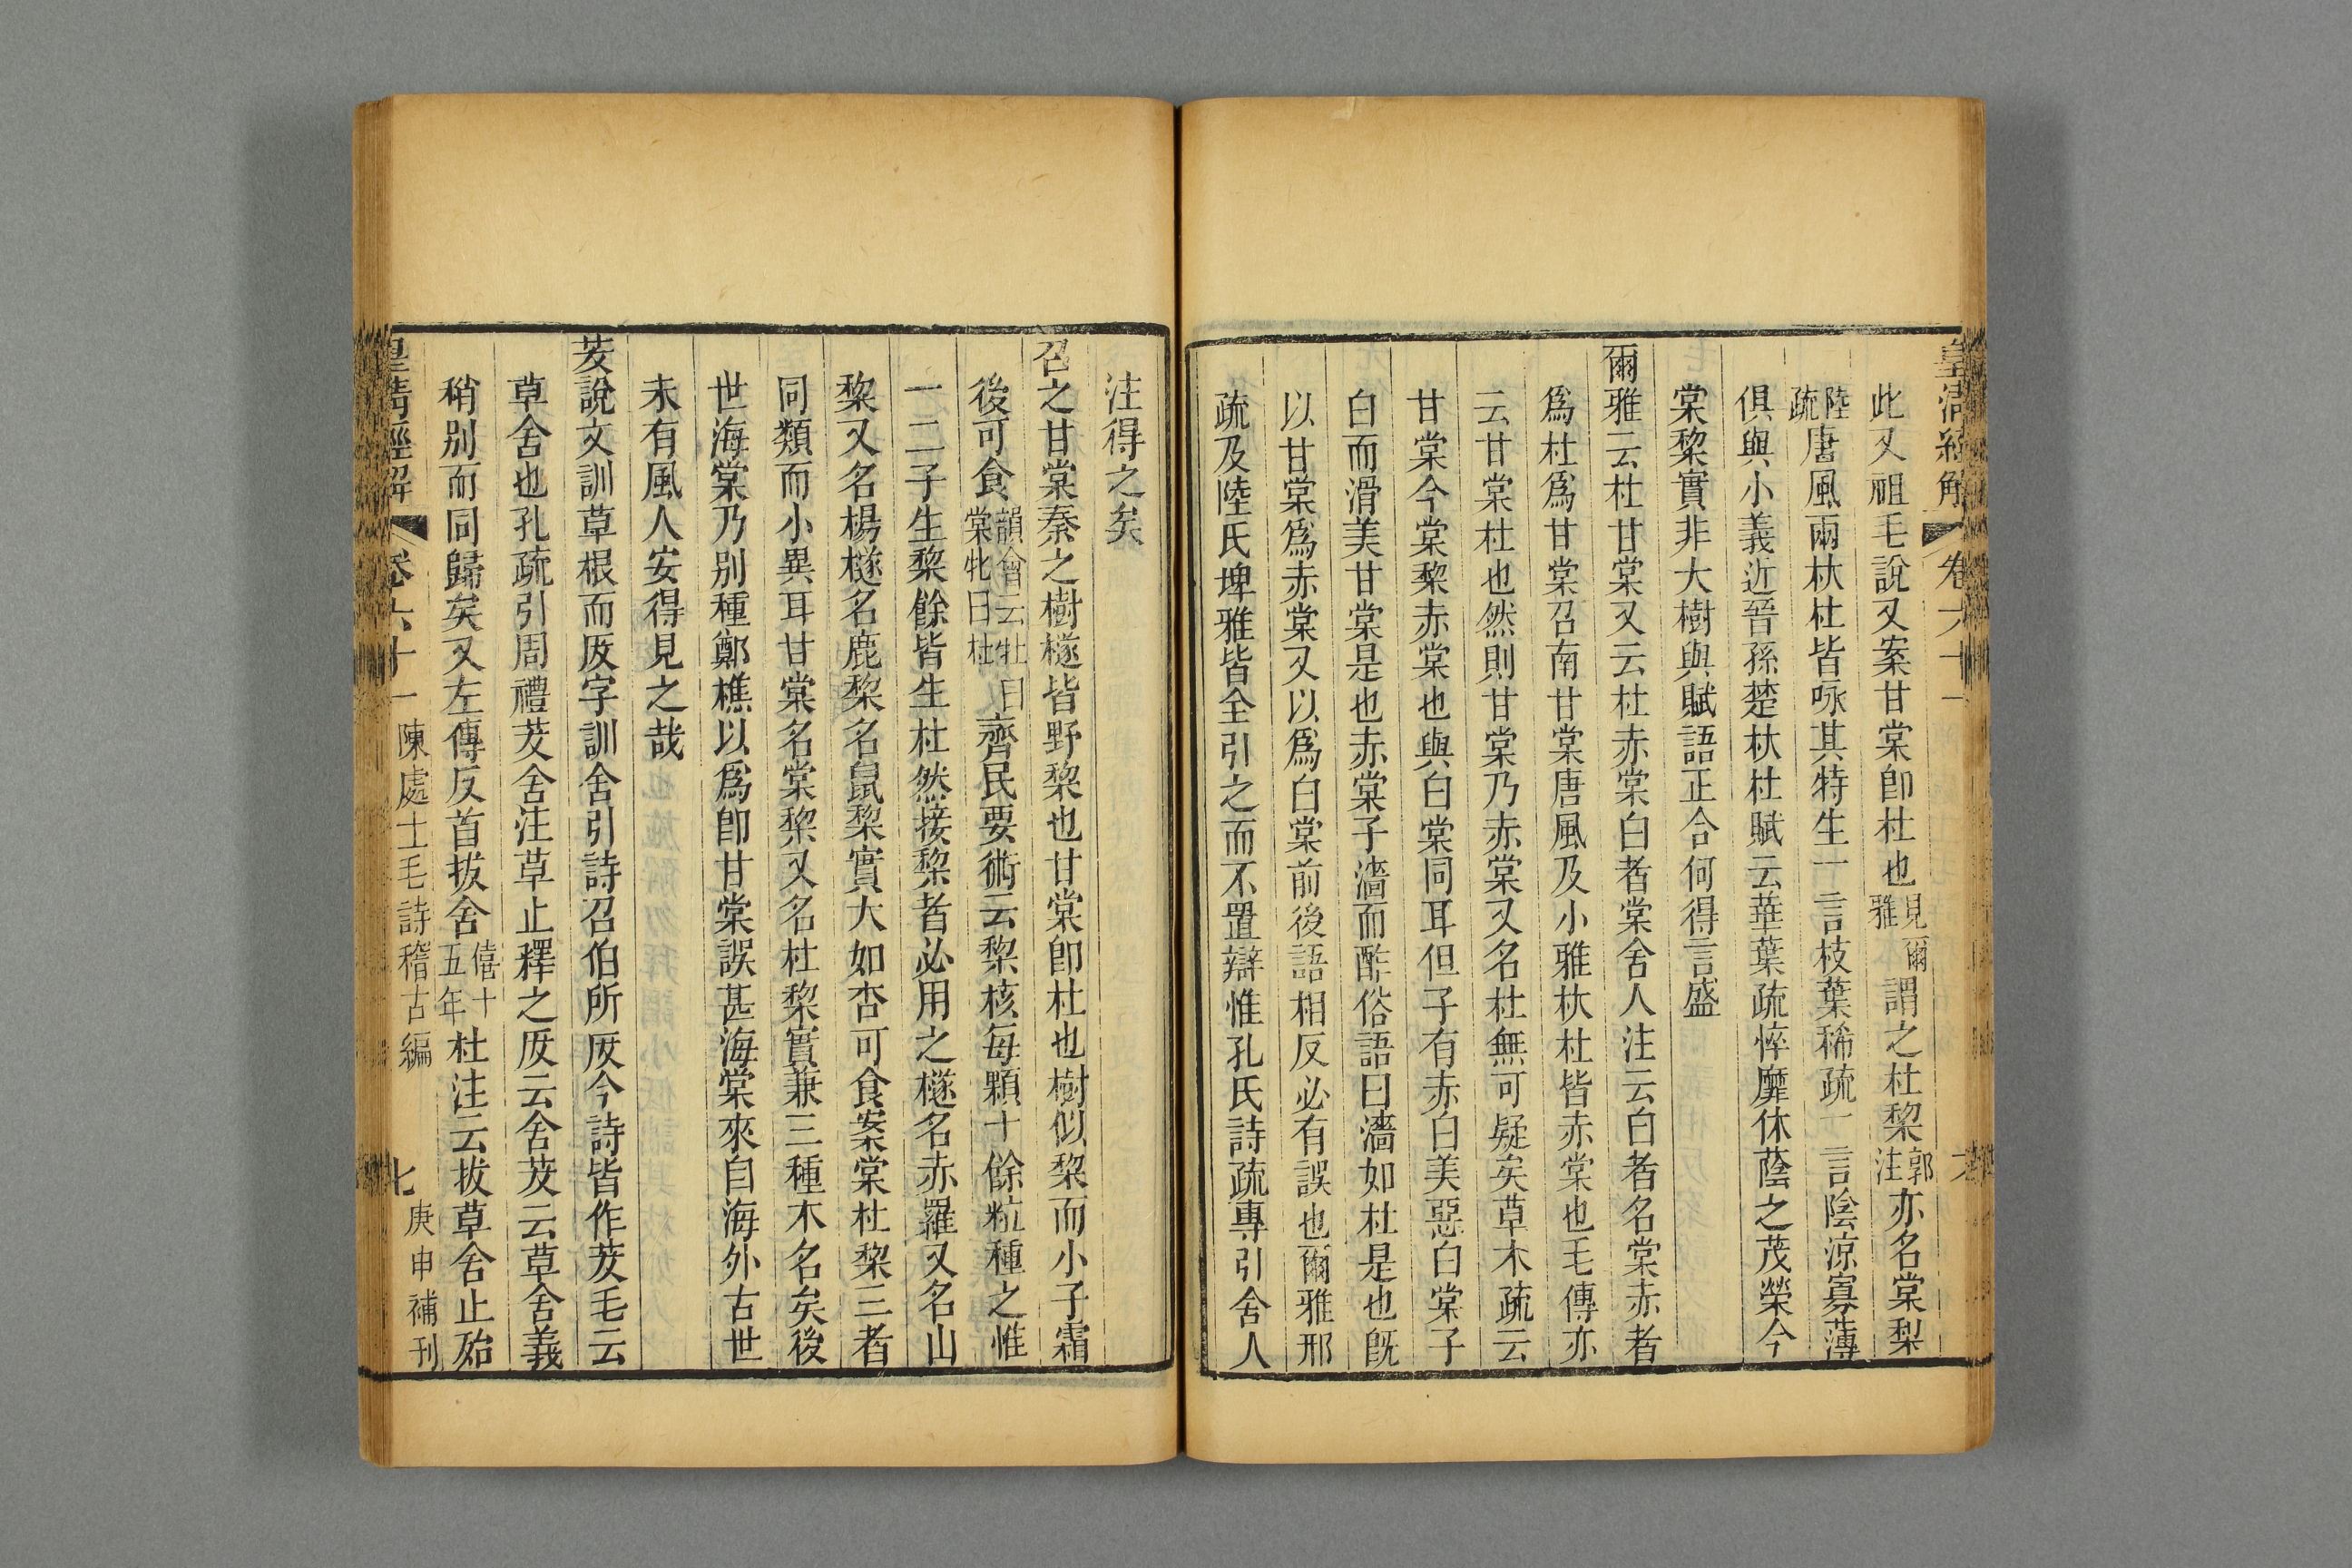 皇清經解 卷六十一 六
此又祖毛說又案甘棠卽杜也見爾雅謂之杜棃郭注亦名棠梨
陸疏唐風兩杕杜皆咏其特生一言枝葉稀疏一言陰涼寡薄
俱與小義近晉孫楚杕杜賦云華葉疏悴靡休蔭之茂榮今
棠棃實非大樹與賦語正合何得言盛
爾雅云杜甘棠又云杜赤棠白者棠舍人注云白者名棠赤者
爲杜爲甘棠召南甘棠唐風及小雅杕杜皆赤棠也毛傳亦
云甘棠杜也然則甘棠乃赤棠又名杜無可疑矣草木疏云
甘棠今棠棃赤棠也與白棠同耳但子有赤白美惡白棠子
白而滑美甘棠是也赤棠子濇而酢俗語曰濇如杜是也旣
以甘棠爲赤棠又以爲白棠前後語相反必有誤也爾雅邢
疏及陸氏埤雅皆全引之而不置辯惟孔氏詩疏專引舍人
注得之矣
召之甘棠秦之樹檖皆野棃也甘棠卽杜也樹似棃而小子霜
後可食韻會云牡曰棠牝曰杜齊民要術云棃核每顆十餘粒種之惟
一二子生棃餘皆生杜然接棃者必用之檖名赤羅又名山
棃又名楊檖名鹿棃名鼠棃實大如杏可食案棠杜棃三者
同類而小異耳甘棠名棠棃又名杜棃實兼三種木名矣後
世海棠乃別種鄭樵以爲卽甘棠誤甚海棠來自海外古世
未有風人安得見之哉
茇說文訓草根而废字訓舍引詩召伯所废今詩皆作茇毛云
草舍也孔疏引周禮茇舍注草止釋之废云舍茇云草舍義
稍別而同歸矣又左傳反首拔舍僖十五年杜注云拔草舍止殆
皇清經解 卷六十一 陳處士毛詩稽古編 七 庚申補刊